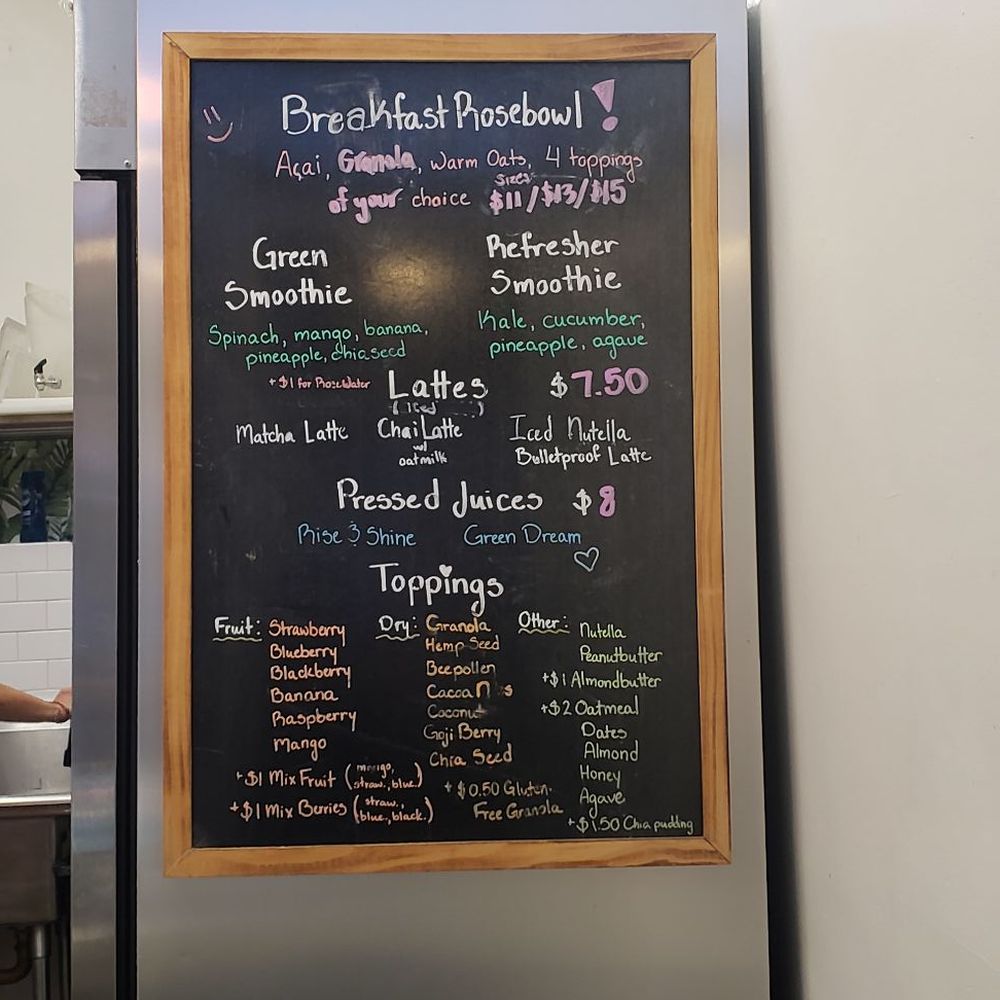 Breakfast Rosebowl!
Açai, Granola, Warm Oats, 4 toppings
Sizes
of your choice $11/$13/$15
Green
Smoothie
Spinach, mango, banana,
pineapple, chiaseed
Refresher
Smoothie
Kale, cucumber,
pineapple, agave
+$1 for RoseWater
Lattes $7.50
(Iced )
Matcha Latte
Chai Latte
w/
oatmilk
Iced Nutella
Bulletproof Latte
Pressed Juices $8
Rise & Shine Green Dream
Toppings
Fruit: Strawberry
Blueberry
Blackberry
Banana
Raspberry
Mango
+$1 Mix Fruit (mango,
straw., blue.)
+$1 Mix Berries (straw.,
blue., black.)
Dry: Granola
Hemp Seed
Beepollen
Cacao
Coconut
Goji Berry
Chia Seed
+$0.50 Gluten-
Free Granola
Other: Nutella
Peanutbutter
+$1 Almondbutter
+$2 Oatmeal
Dates
Almond
Honey
Agave
+$1.50 Chia pudding